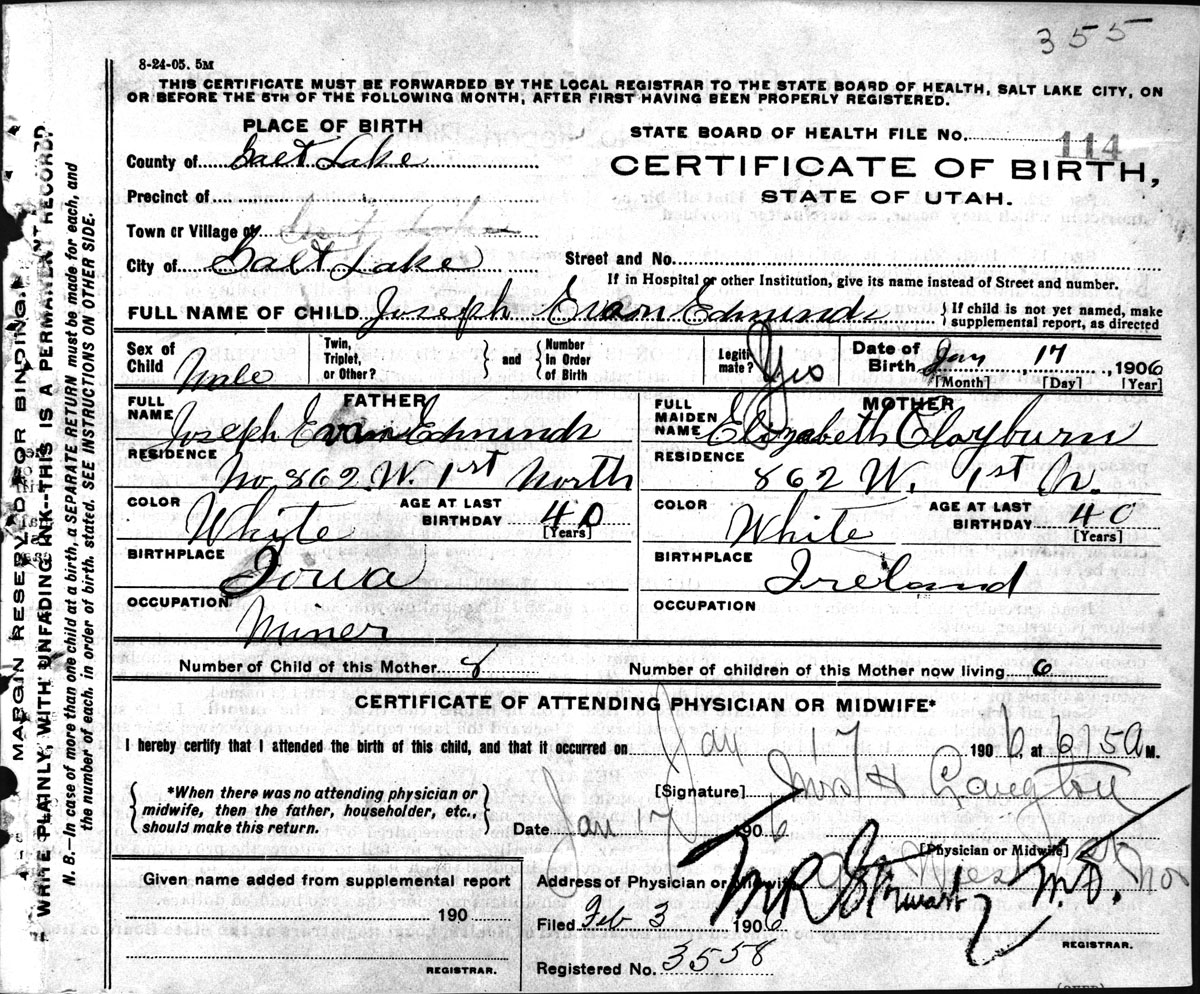 355
8-24-05. 5M
THIS CERTIFICATE MUST BE FORWARDED BY THE LOCAL REGISTRAR TO THE STATE BOARD OF HEALTH, SALT LAKE CITY, ON
OR BEFORE THE 5TH OF THE FOLLOWING MONTH, AFTER FIRST HAVING BEEN PROPERLY REGISTERED.
MARGIN RESERVED FOR BINDING.
WRITE PLAINLY, WITH UNFADING INK--THIS IS A PERMANENT RECORD.
N. B.—In case of more than one child at a birth, a SEPARATE RETURN must be made for each, and
the number of each. in order of birth. stated. SEE INSTRUCTIONS ON OTHER SIDE.
PLACE OF BIRTH
STATE BOARD OF HEALTH FILE NO. 114
County of Salt Lake
CERTIFICATE OF BIRTH,
STATE OF UTAH.
Precinct of
Town or Village of
City of Salt Lake
Street and No.
If in Hospital or other Institution, give its name instead of Street and number.
FULL NAME OF CHILD Joseph Evan Edmunds { If child is not yet named, make
supplemental report, as directed
Sex of Child Male
Twin, Triplet, or Other? } and { Number in Order of Birth
Legiti- mate? Yes
Date of Birth Jan 17, 1906
[Month] [Day] [Year]
FATHER
FULL NAME Joseph Evan Edmunds
RESIDENCE No. 862 W. 1st North
COLOR White AGE AT LAST BIRTHDAY 40 [Years]
BIRTHPLACE Iowa
OCCUPATION Miner
MOTHER
FULL MAIDEN NAME Elizabeth Clayburn
RESIDENCE 862 W. 1st N.
COLOR White AGE AT LAST BIRTHDAY 40 [Years]
BIRTHPLACE Ireland
OCCUPATION
Number of Child of this Mother 8 Number of children of this Mother now living 6
CERTIFICATE OF ATTENDING PHYSICIAN OR MIDWIFE*
I hereby certify that I attended the birth of this child, and that it occurred on Jan 17 1906, at 6 15 A M.
{ *When there was no attending physician or
midwife, then the father, householder, etc.,
should make this return. }
[Signature]
Date Jan 17 1906
[Physician or Midwife]
Given name added from supplemental report
190
REGISTRAR.
Address of Physician or Midwife
Filed Feb 3 1906 M.D.
REGISTRAR.
Registered No. 3558
(OVER)